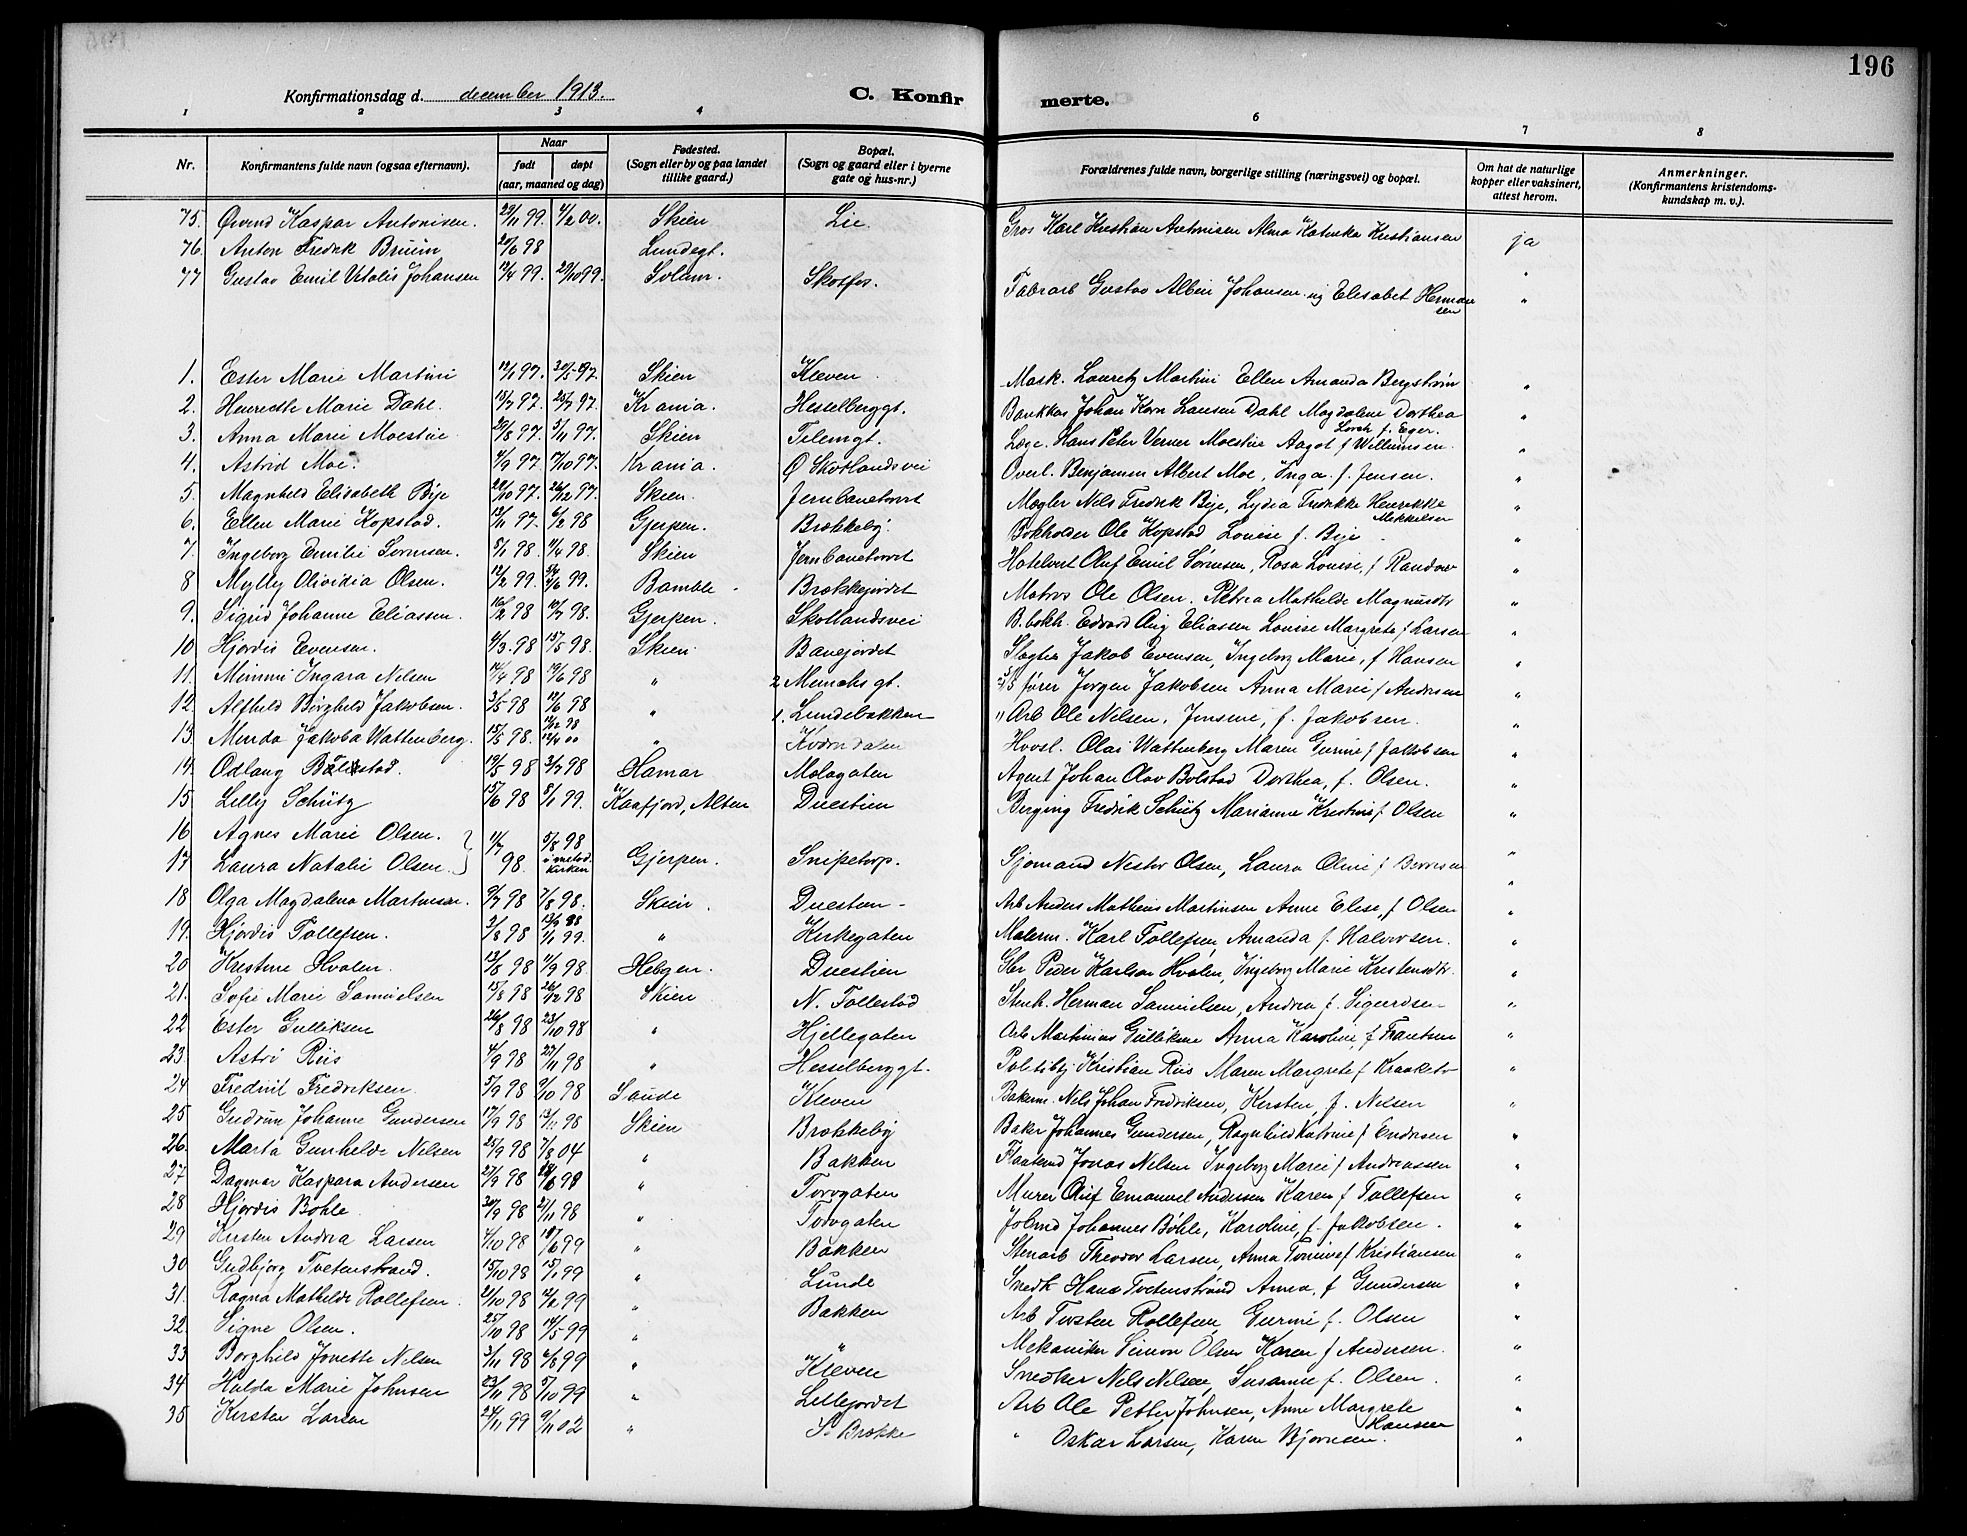 196
Konfirmationsdag d. december 1913.
C. Konfir merte.
1 2 3 4 6 7 8
Nr. Konfirmantens fulde navn (ogsaa efternavn). Naar født døpt (aar, maaned og dag) Fødested. (Sogn eller by og paa landet tillike gaard.) Bopæl. (Sogn og gaard eller i byerne gate og hus-nr.) Forældrenes fulde navn, borgerlige stilling (næringsvei) og bopæl. Om hat de naturlige kopper eller vaksinert, attest herom. Anmerkninger. (Konfirmantens kristendoms-kundskap m. v.).
75. Øivend Kaspar Antonisen. 29/11 99. 4/2 00. Skien Lie Gros Karl Kristian Antonisen Alma Katinka Kristiansen ja
76. Anton Fredrik Bruun 98 Lundegt.
77 Gustav Emil Vitalis Johansen 12/4 99. 29/10 99. Solum. Skotfos. Fabrarb Gustav Albin Johansen og Elisabet Hermansen "
1. Ester Marie Martini 12/1 97. 97. Skien Kleven Mask. Lauretz Martini Ellen Amanda Bergstrøm "
2. Henriette Marie Dahl. 97. 97. Krania. Hesselberggt. Bankkas Johan Korn Lansen Dahl Magdalene Dorthea Lorck f. Eger. "
3. Anna Marie Moestue 29/8 97. 5/11 97. Skien Telemgt. Læge. Hans Peter Verner Moestue Aagot f Willumsen. "
4. Astrid Moe. 4/9 97. 17/10 97. Krania. Ø Skotlandsvei Overl. Benjamin Albert Moe, Inga f. Jensen. "
5. Magnhild Elisabeth Bye 97. 26/12 97. Skien. Jernbanetorvet Mægler Nels Fredrik Bye, Lydia Fredrikke Henrikke Mikkelsen "
6. Ellen Marie Kopstad. 13/11 97. 6/2 98 Gjerpen. Brækkeby. Bokholder Ole Kopstad Louise f. Bye "
7. Ingeborg Emilie Sørensen. 5/1 98. 98. Skien Jernbanetorvet Hotelvert Oluf Emil Sørensen, Rosa Louise, f Randow "
8 Mylly Olividia Olsen. 12/2 99. 99. Bamble Brækkejordet Matros Ole Olsen. Petrea Mathilde Magnusdtr "
9. Sigrid Johanne Eliassen. 98 98. Gjerpen. Skotlandsvei B.bokh. Edvard Aug Eliassen Louise Margrete f Larsen "
10 Hjørdis Evensen. 4/3 98 15/5 98. Skien. Banejordet Slagter Jakob Evensen, Ingeborg Marie, f Hansen "
11. Mimmi Ingara Nelsen 14/4 98 19/6 98 " 2 Munchs gt. fører Jørgen Jakobsen Anna Marie f Andersen "
12. Alfhild Borghild Jakobsen. 3/5 98 12/6 98 " 1. Lundebakken Arb Ole Nelsen, Jensine, f. Jakobsen. "
13. Minda Jakoba Wattenberg. 15/5 98. 12/4 00 " Kværndalen Hovsl. Olai Wattenberg Maren Gurine f Jakobsen "
14. Odlaug Bolstad. 19/5 98 3/7 98 Hamar Mælagaten Agent Johan Olav Bolstad Dorthea, f. Olsen. "
15. Lilly Schütz 15/6 98 8/1 99. Kaafjord, Alten Duestien Berging Fredrik Schütz Marianne Kristine f Olsen "
16 Agnes Marie Olsen.
17 Laura Natalie Olsen. 11/7 98. 5/8 98 i metod. kirken Gjerpen. Snipetorp. Sjømand Nestor Olsen, Laura Oline f "
18 Olga Magdalena Martinsen. 9/7 98 7/8 98. Skien Duestien Arb Anders Mathias Martinsen Anne Elise, f Olsen "
19. Hjørdis Tollefsen. 3/8 98 99. " Kirkegaten Malerm. Karl Tollefsen, Amanda f. Halvorsen. "
20 Kristine Hvalen. 13/8 98 11/9 98. Hebgen. Duestien Gbr Peder Karlsen Hvalen, Ingeborg Marie Kristensdtr. "
21. Sofie Marie Samuelsen 15/8 98 26/12 98 Skien N. Follestad Stenh. Herman Samuelsen, Andrea f. Sigurdsen "
22 Ester Gulliksen 26/8 98 23/10 98 " Hjellegaten Arb Martinius Gulliksen Anna Karoline, f Frantsen "
23. Astri Riis 4/9 98 27/11 98 " Hesselberggt. Politibtj. Kristian Riis Maren Margrete f "
24 Fredrik Fredriksen 5/9 98 9/10 98 Saude Kleven Bakerm. Nels Johan Fredriksen, Kirsten, f. Nelsen "
25 Gudrun Johanne Gundersen 17/9 98 13/11 98 Skien Brækkeby Baker Johannes Gundersen, Ragnhild Katrine f Endresen "
26. Marta Gunhilde Nelsen 25/9 98 7/8 04 " Bakken Jonas Nelsen Ingeborg Marie f Andreassen "
27 Dagmar Kaspara Andersen 27/9 98 98 " Torvgaten Murer Oluf Emanuel Andersen Karen f Tollefsen "
28 Hjørdis Bøhle. 30/9 98 27/11 98 " Torvgaten Johannes Bøhle, Karoline, f. Jakobsen. "
29 Kirsten Andrea Larsen 4/10 98 18/6 99 " Bakken Stenarb Theodor Larsen, Anna Tomine f Kristiansen "
30 Gudbjørg Tvetenstrand. 15/10 98 15/1 99 " Lunde Snedk Hans Tvetenstrand Anna, f Gundersen "
31. Ragna Mathilde Rollefsen. 21/10 98 12/2 99 " Bakken Arb Torsten Rollefsen, Gurine f. Olsen "
32. Signe Olsen. 25/10 98 14/5 99 " " Mekaniker Simon Olsen Karen f Andersen. "
33 Borghild Jonette Nelsen 3/11 98 6/8 99 " Kleven Snedker Nels Nelsen, Susanne f. Olsen. "
34 Hulda Marie Johnsen 23/11 98 5/10 99 " Lillejordet Arb Ole Petter Johnsen, Anne Margrete Hansen "
35 Kirsten Larsen 24/11 99 9/11 02 " S. Brække " Oskar Larsen, Karen Bjørnsen. "